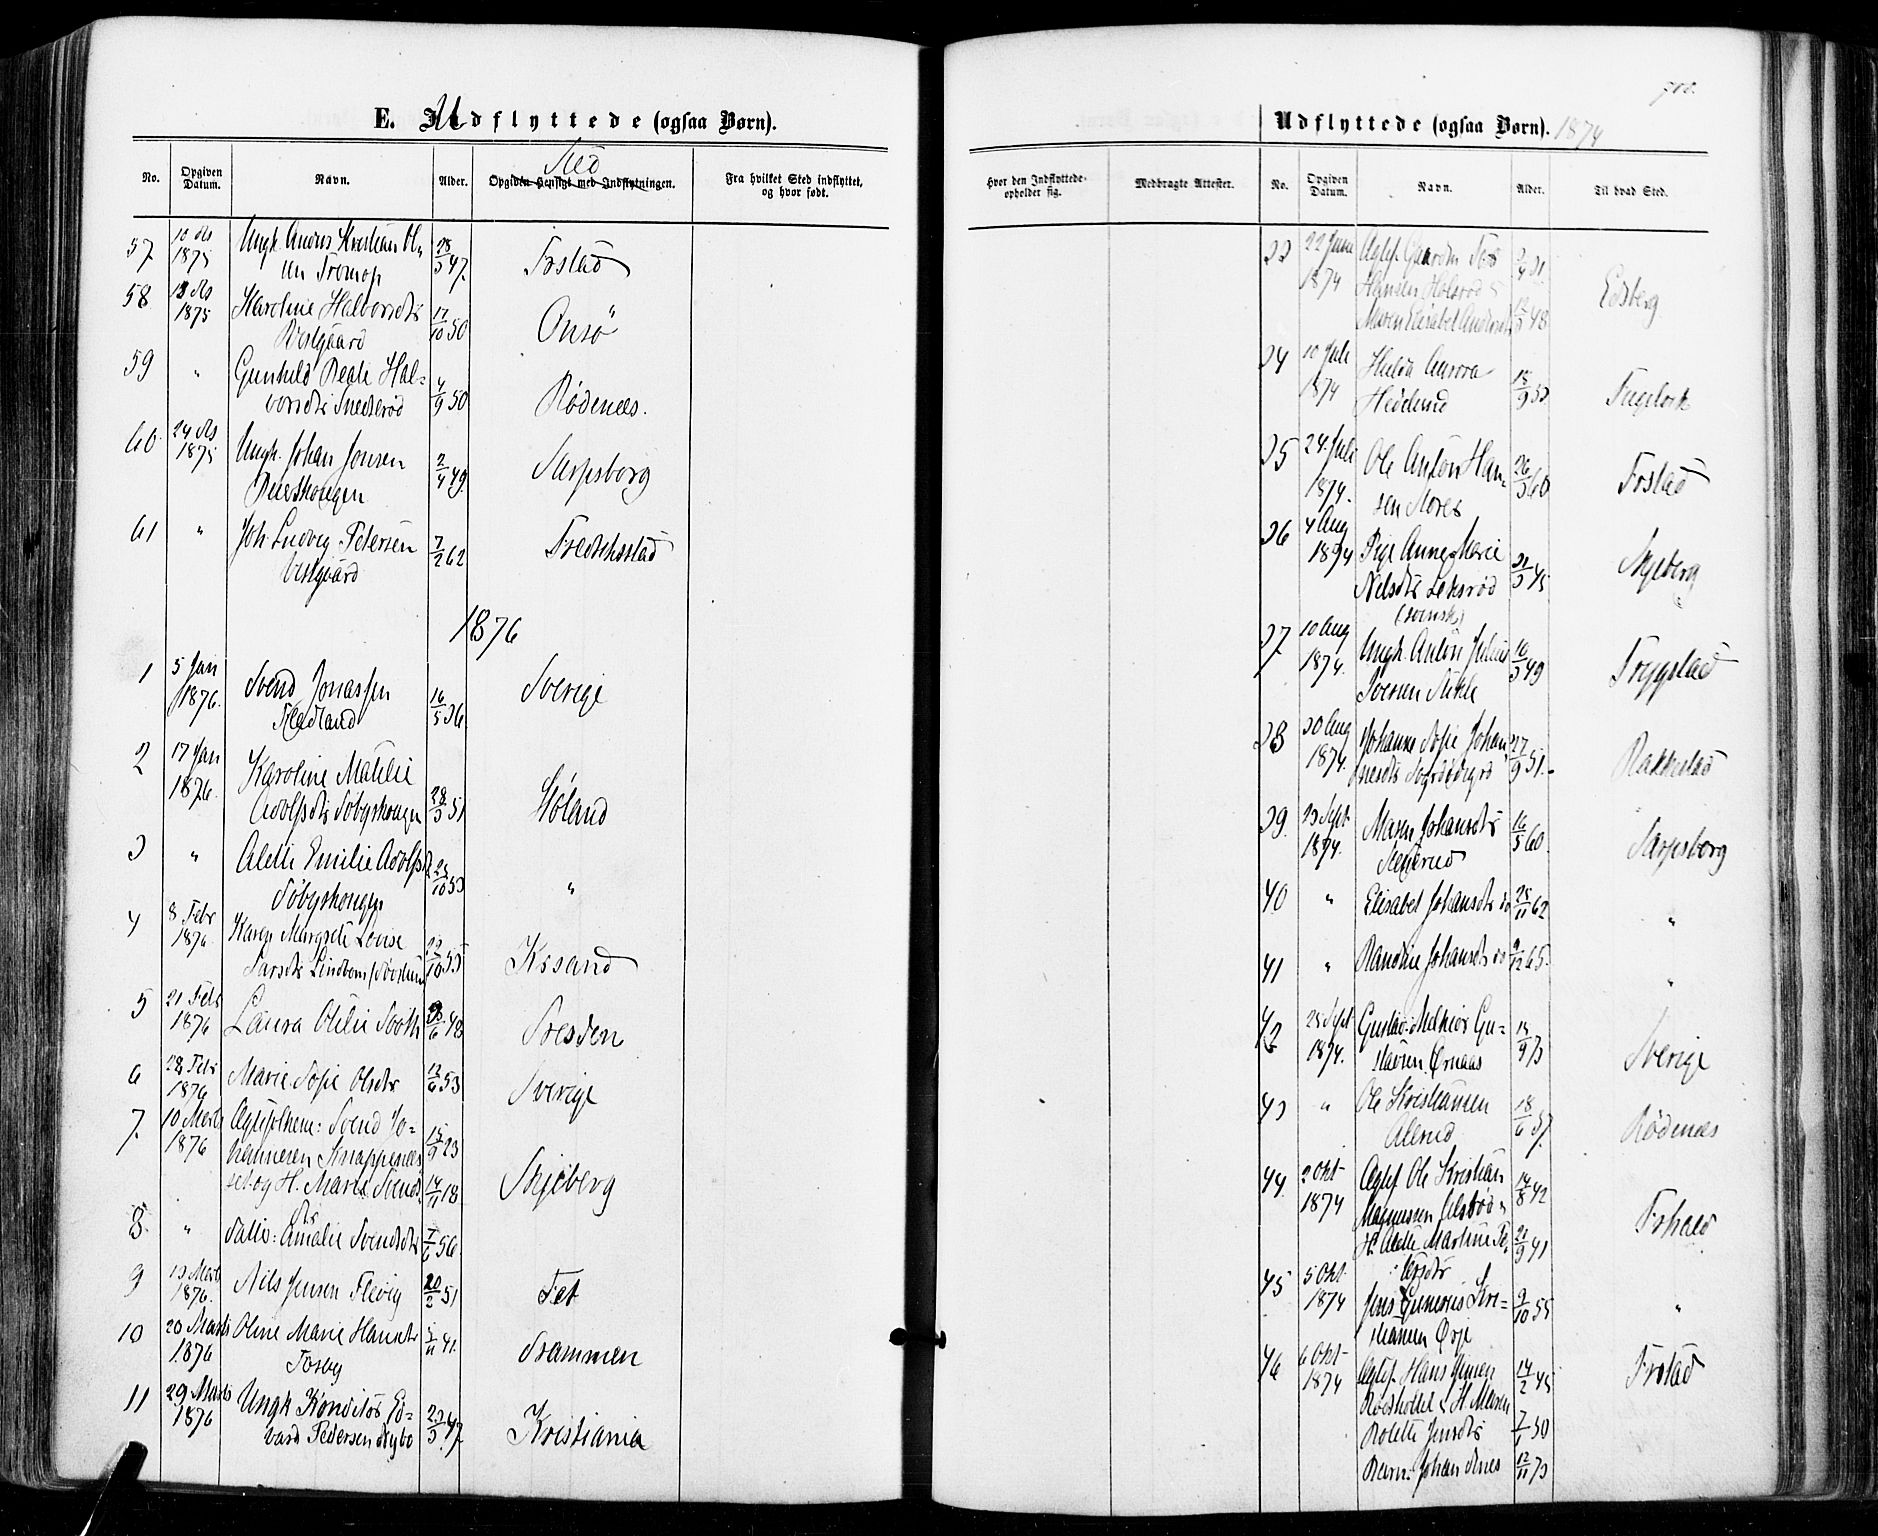 E. Udflyttede (ogsaa Børn).
No.
Opgiven Datum.
Navn.
Alder.
Sted
Opgiven Hensigt med Indflytningen.
Fra hvilket Sted indflyttet, og hvor født.
57 10 Ds 1875 Ungk. Anders Kristian 28/3 47. Frstad
58 13 Ds 1875 Karoline Halvorsdtr Vestgaard 17/10 50 Onsø
59 " Gunhild Beate Halvorsdtr 4/9 50 Rødenæs.
60 24 Ds 1875 Ungk. Johan Jonsen 2/4 49. Sarpsborg
61 " Joh. Ludvig Petersen Vestgaard 7/2 62 Fredriksstad
1876
1 5 Jan 1876. Svend Jonassen 16/5 36 Sverige
2 17 Jan 1876. Karoline Matilde Adolfsdtr Søbyskougen 28/3 51 Høland
3 " Alette Emilie Adolfsd Søbyskougen 10 53 "
4 8 Febr 1876 Karen Margrete Lovise Larsdtr 10 55 Krsand
5 21 Febr 1876 Laura Otilie Tooth 6 48 Dresden
6 28 Febr 1876 Marie Sofie Olsdtr 12/6 53 Sverige
7. 10 Marts 1876 Ægtefolkene: Svend Johannesen Knappenæs set. og H. Maria Svendsdtr 15/9 23 14/11 18 Skjeberg
8. " Datter: Amalie Svendsdtr 7/6 56.
9 13 Marts 1876. Nils Jensen Flevig 20/2 51 Fet
10 20 Marts 1876 Oline Marie Hansdtr Tosby 11 41. Drammen
11 29 Marts 1876 Ungk Konditor Edvard Pedersen Nybo 23/3 47. Kristiania
700.
Udflyttede (ogsaa Børn). 1874
Hvor den Indflyttede opholder sig.
Medbragte Attester.
No.
Opgiven Datum.
Navn.
Alder.
Til hvad Sted.
33 22 Juni 1874 Hansen Holsrød Maren Elisabet Andersd 4 31. 12/3 48 Edsberg
34 10 Juli 1874 Hulda Aurora Hedlund 15/9 53
35 24. Juli 1874. Ole Anton Hansen 26/3 60 Frstad
36 4 Aug 1874 Pige Anne Marie Nilsdtr (svensk) 31/3 45 Skjeberg
37. 10 Aug 1874. Ungk. Anton Julius Iversen 16/3 49 Trygstad
38 30 Aug 1874. Johanne Sofie Johannesdtr 27/9 51. Rakkestad
39. 23 Sept. 1874. Maren Johansdtr 16/5 60. Sarpsborg
40 " Elisabet Johansdtr do 25/11 62 "
41 " Randine Johansdtr do 9/12 65. "
42 25 Sept 1874. Gustav Melkior Gustavsen Ørnaas 15/9 73 Sverige
43 " Ole Kristiansen 18/6 37. Rødenæs
44. 2 Okt 1874 Ægtef. Ole Kristian Magnussen H. Alette Martine 14/8 42 21/9 41 Frhald
45 5 Okt 1874 Jens Gunerius Kristiansen Ørje 9/10 55 "
46 6 Okt 1874 Ægtef. Hans Jensen H. Maren Rolette Jensdtr Barn: Johan 14/2 45 50 12/11 73 Frstad